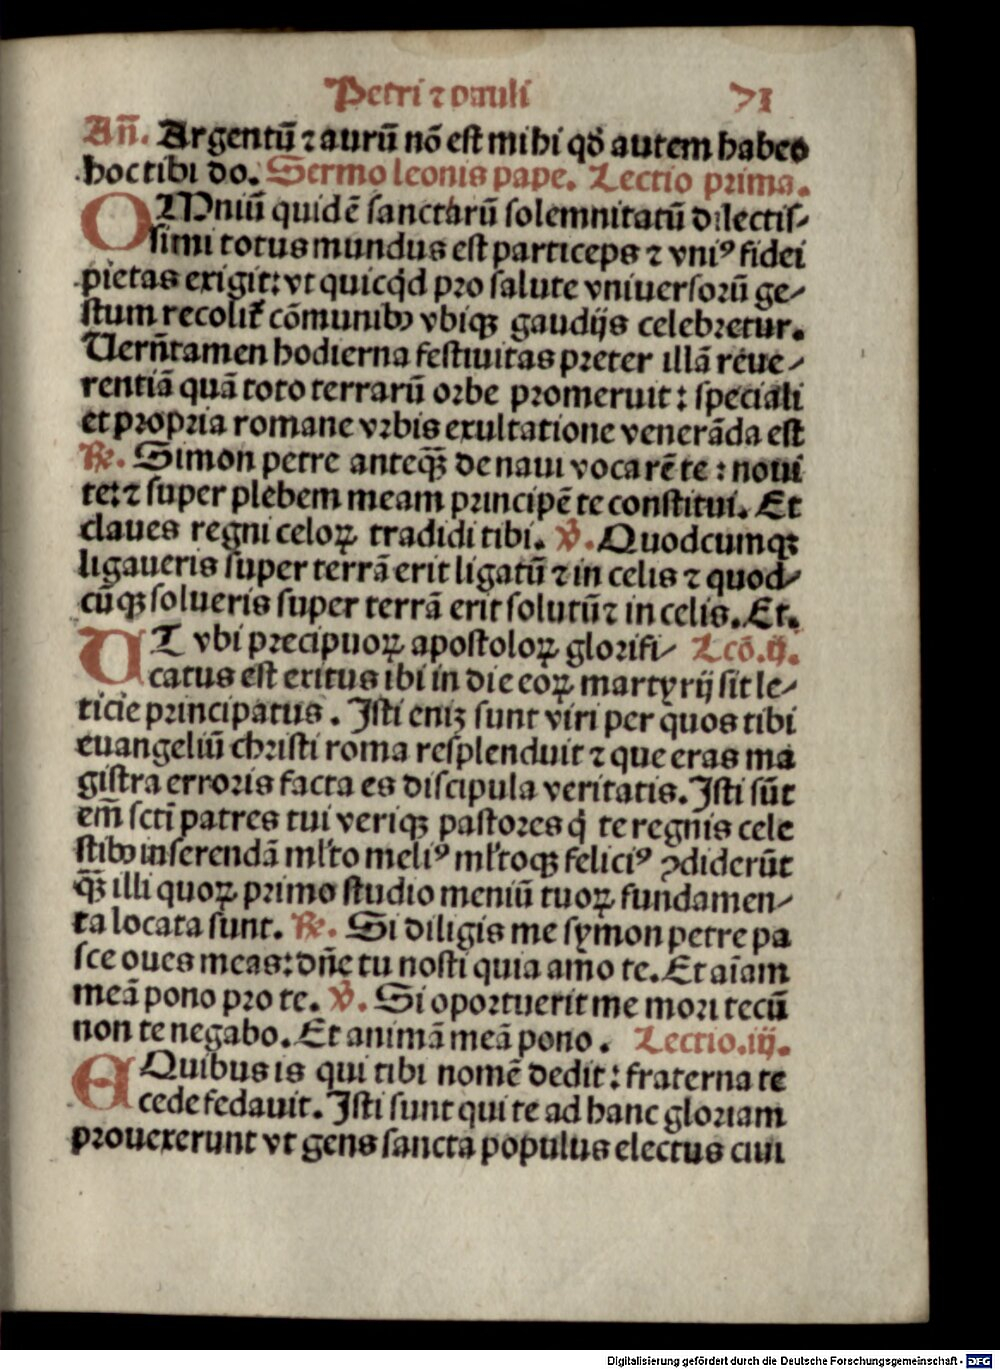 Petri ⁊ pauli 71
Añ. Argentū ⁊ aurū nō est mihi qđ autem habeo
hoc tibi do. Sermo leonis pape. Lectio prima.
OMniū quidē sanctarū solemnitatū dilectis⸗
simi totus mundus est particeps ⁊ vniꝰ fidei
pietas exigit: vt quicq̇d pro salute vniuersorū ge⸗
stum recolit᷑ cōmunibꝫ vbiqꝫ gaudijs celebretur.
Uerūtamen hodierna festiuitas preter illā reue⸗
rentiā quā toto terrarū orbe promeruit: speciali
et propria romane vrbis exultatione venerāda est
℟. Simon petre anteqꝫ̄ de naui vocarē te: noui
te: ⁊ super plebem meam principē te constitui. Et
claues regni celoꝝ tradidi tibi. ℣. Quodcumqꝫ
ligaueris super terrā erit ligatū ⁊ in celis ⁊ quod⸗
cūqꝫ solueris super terrā erit solutū ⁊ in celis. Et.
UT vbi precipuoꝝ apostoloꝝ glorifi⸗ Lcō.ij.
catus est exitus ibi in die eoꝝ martyrij sit le⸗
ticie principatus. Isti eniꝫ sunt viri per quos tibi
euangeliū christi roma resplenduit ⁊ que eras ma
gistra erroris facta es discipula veritatis. Isti sūt
em̄ scti patres tui veriqꝫ pastores q̇ te regnis cele
stibꝫ inserendā ml̓to meliꝰ ml̓toqꝫ feliciꝰ ꝯdiderūt
qꝫ̄ illi quoꝝ primo studio meniū tuoꝝ fundamen⸗
ta locata sunt. ℟. Si diligis me symon petre pa
sce oues meas: dn̄e tu nosti quia amo te. Et aīam
meā pono pro te. ℣. Si oportuerit me mori tecū
non te negabo. Et animā meā pono. Lectio.iij.
EQuibus is qui tibi nomē dedit: fraterna te
cede fedauit. Isti sunt qui te ad hanc gloriam
prouexerunt vt gens sancta populus electus ciui
Digitalisierung gefördert durch die Deutsche Forschungsgemeinschaft - DFG